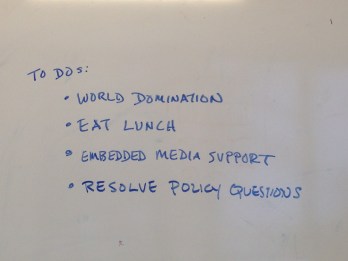 TO DOS:
• WORLD DOMINATION
• EAT LUNCH
• EMBEDDED MEDIA SUPPORT
• RESOLVE POLICY QUESTIONS